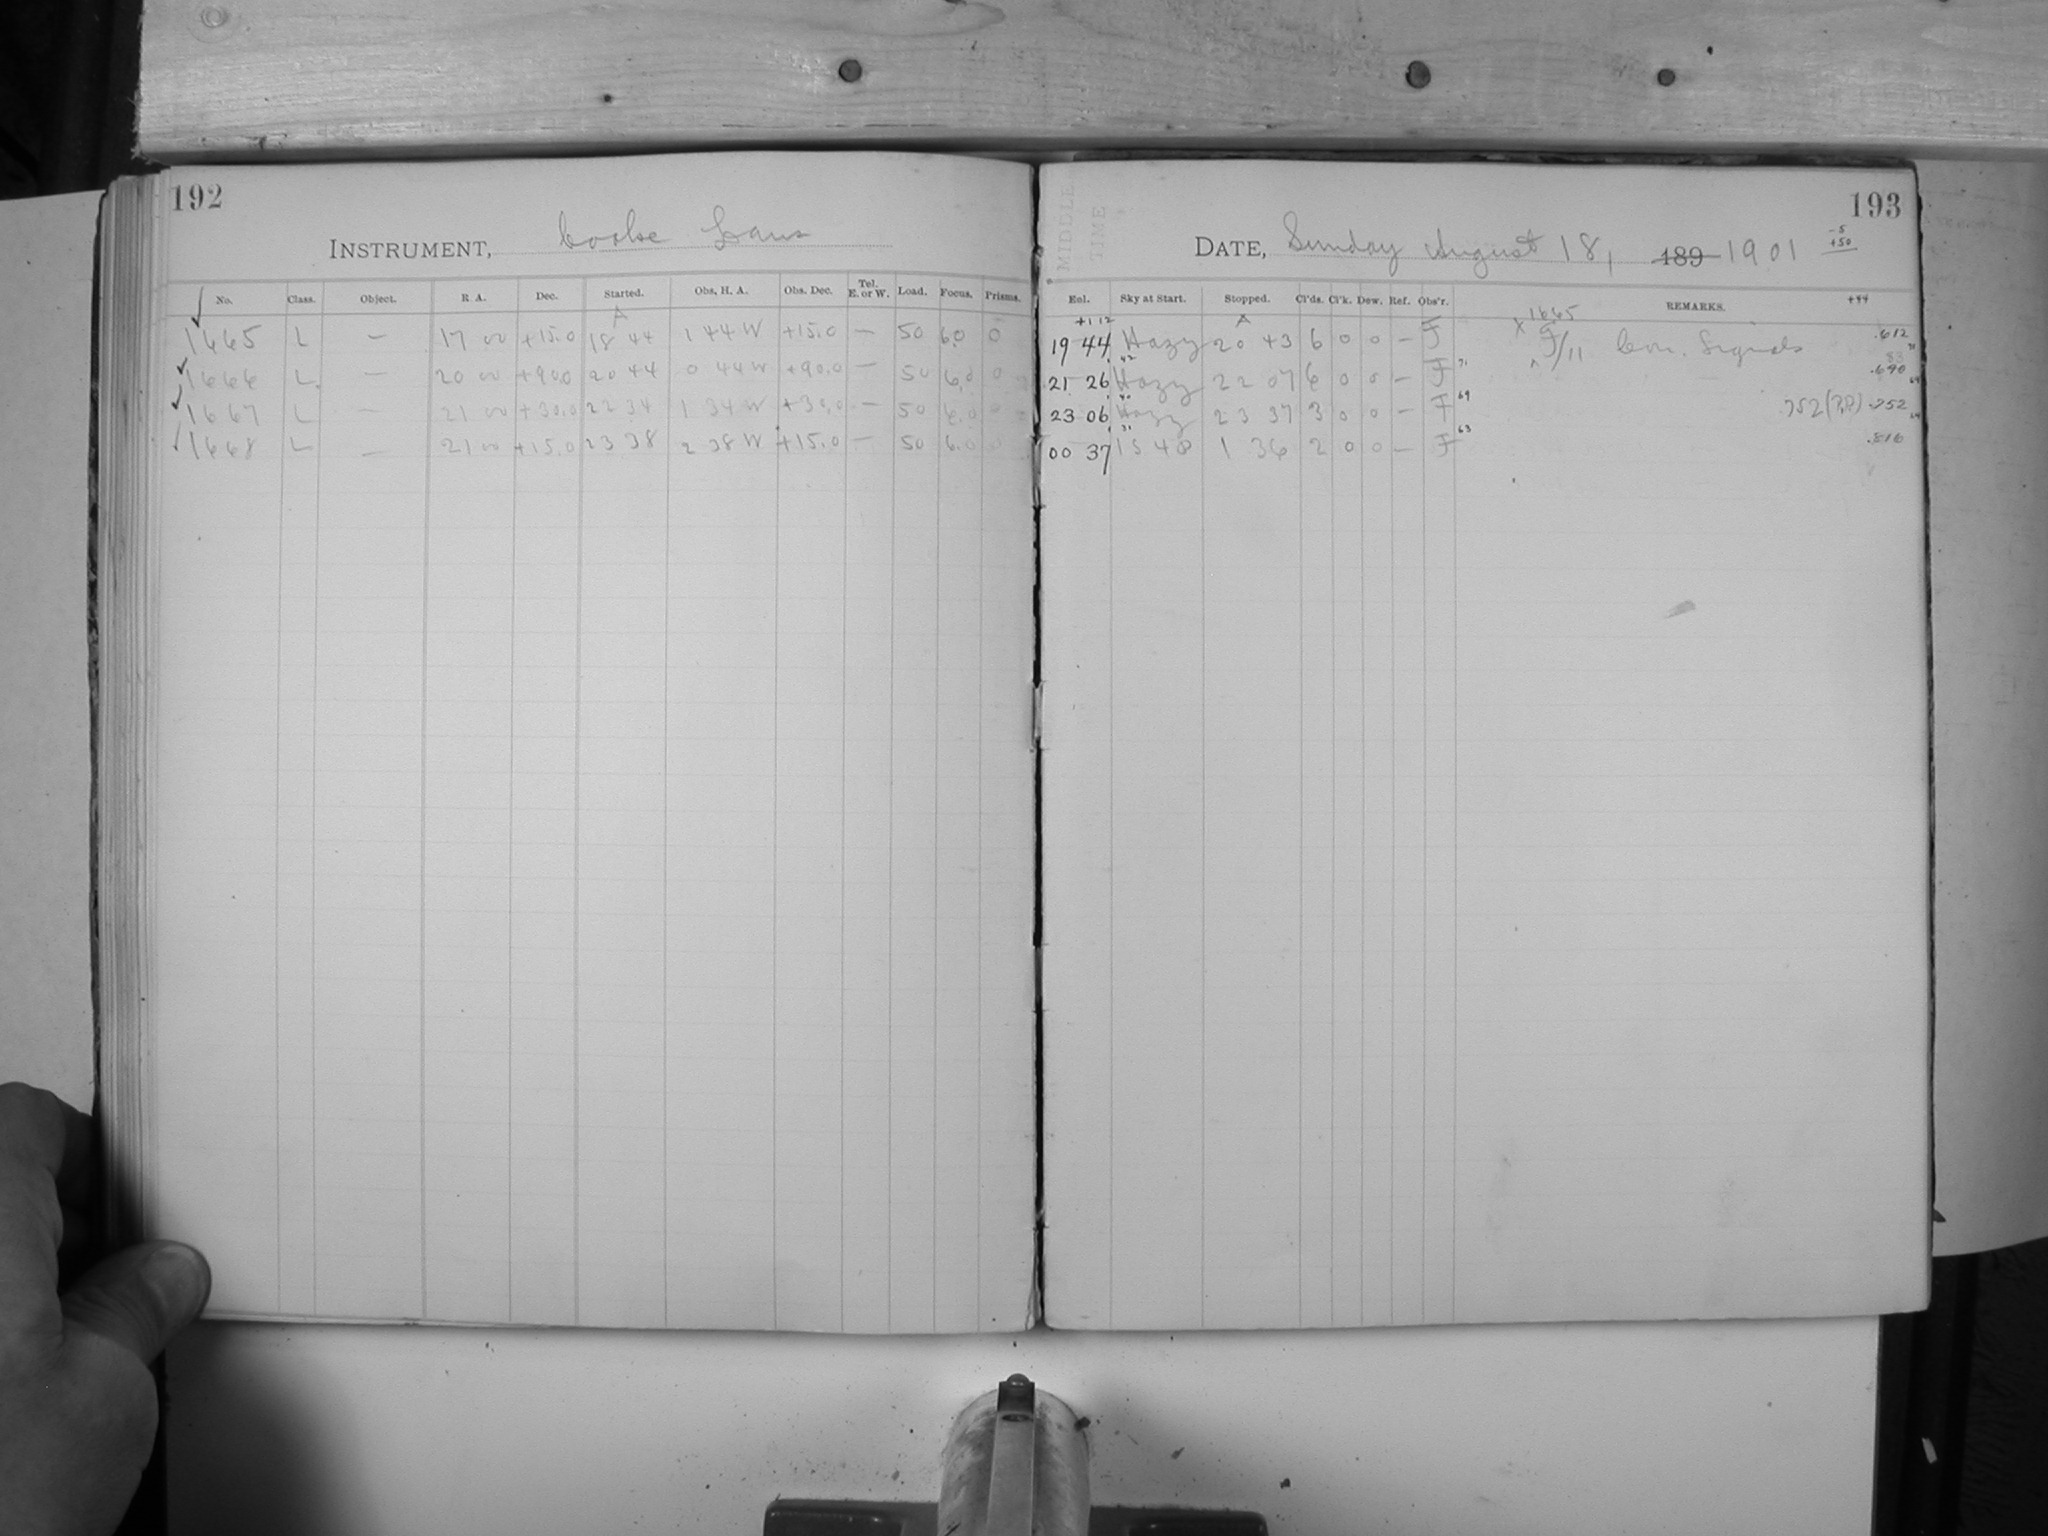 192
INSTRUMENT, Cooke Lens
No. Class. Object. R. A. Dec. Started. Obs. H. A. Obs. Dec. Tel. E. or W. Load. Focus. Prisms.
A
1665 L — 17 00 +15.0 18 44 1 44 W +15.0 — 50 6.0 0
1666 L — 20 00 +90.0 20 44 0 44 W +90.0 — 50 6.0 0
1667 L — 21 00 +30.0 22 34 1 34 W +30.0 — 50 6.0 0
1668 L — 21 00 +15.0 23 38 2 38 W +15.0 — 50 6.0 0
MIDDLE TIME
193
DATE, Sunday August 18, 189 1901
-5
+50
+44
Eol. Sky at Start. Stopped. Cl'ds. Cl'k. Dew. Ref. Obs'r. REMARKS.
+1 12 A 1665
19 44 Hazy 20 43 6 0 0 — F /11 Com. Signals .612
42 71
21 26 Hazy 22 07 6 0 0 — F .690
40 69
23 06 Hazy 23 37 3 0 0 — F .752
31 63
00 37 1548 1 36 2 0 0 — F .816